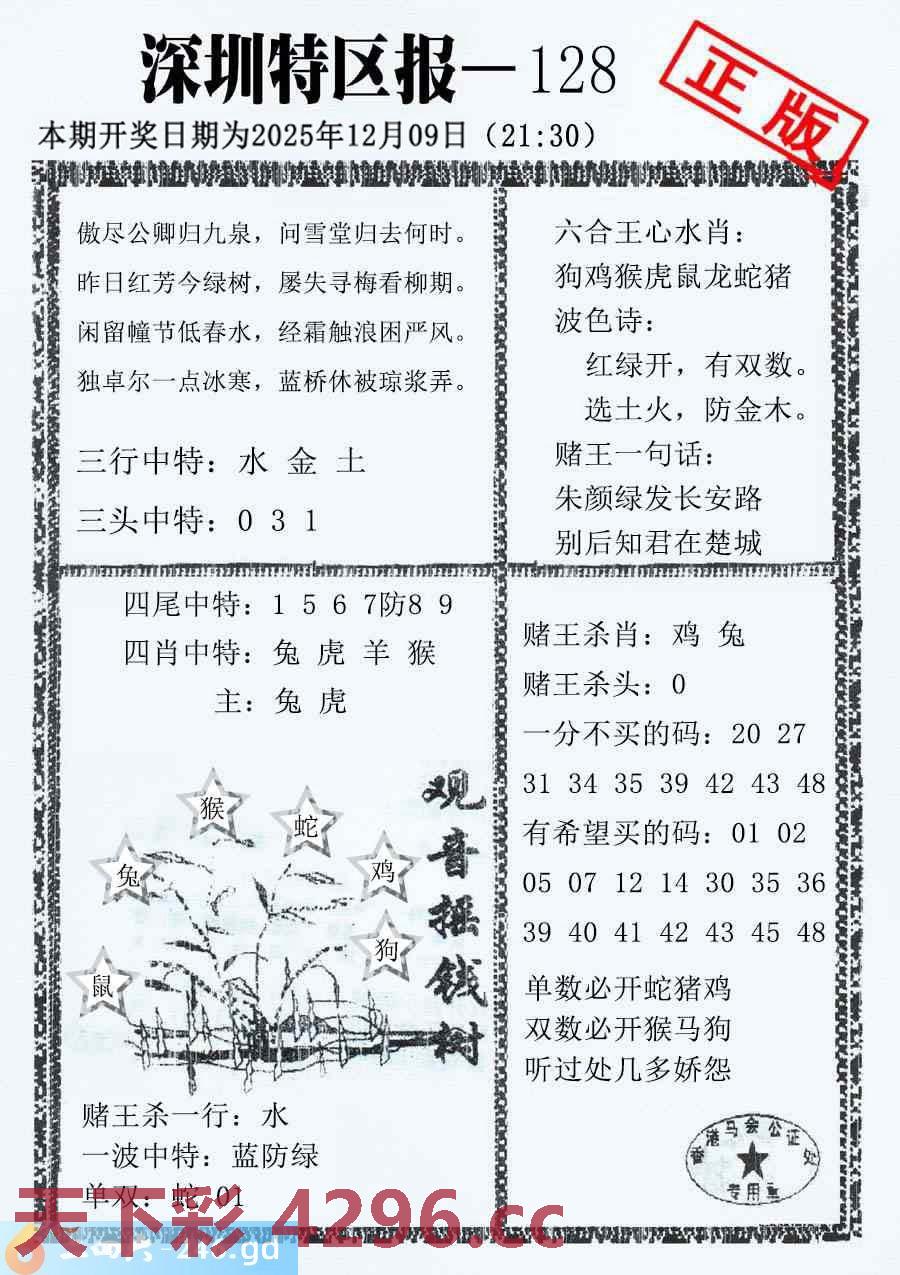 深圳特区报—128
正版
本期开奖日期为2025年12月09日（21:30）
傲尽公卿归九泉，问雪堂归去何时。
昨日红芳今绿树，屡失寻梅看柳期。
闲留幢节低春水，经霜触浪困严风。
独卓尔一点冰寒，蓝桥休被琼浆弄。
三行中特：水 金 土
三头中特：0 3 1
六合王心水肖：
狗鸡猴虎鼠龙蛇猪
波色诗：
红绿开，有双数。
选土火，防金木。
赌王一句话：
朱颜绿发长安路
别后知君在楚城
四尾中特：1 5 6 7防8 9
四肖中特：兔 虎 羊 猴
主：兔 虎
观音摇钱树
猴
蛇
兔
鸡
狗
鼠
赌王杀一行：水
一波中特：蓝防绿
单双：蛇 01
赌王杀肖：鸡 兔
赌王杀头：0
一分不买的码：20 27
31 34 35 39 42 43 48
有希望买的码：01 02
05 07 12 14 30 35 36
39 40 41 42 43 45 48
单数必开蛇猪鸡
双数必开猴马狗
听过处几多娇怨
香港马会公证处
专用章
天下彩 4296.cc